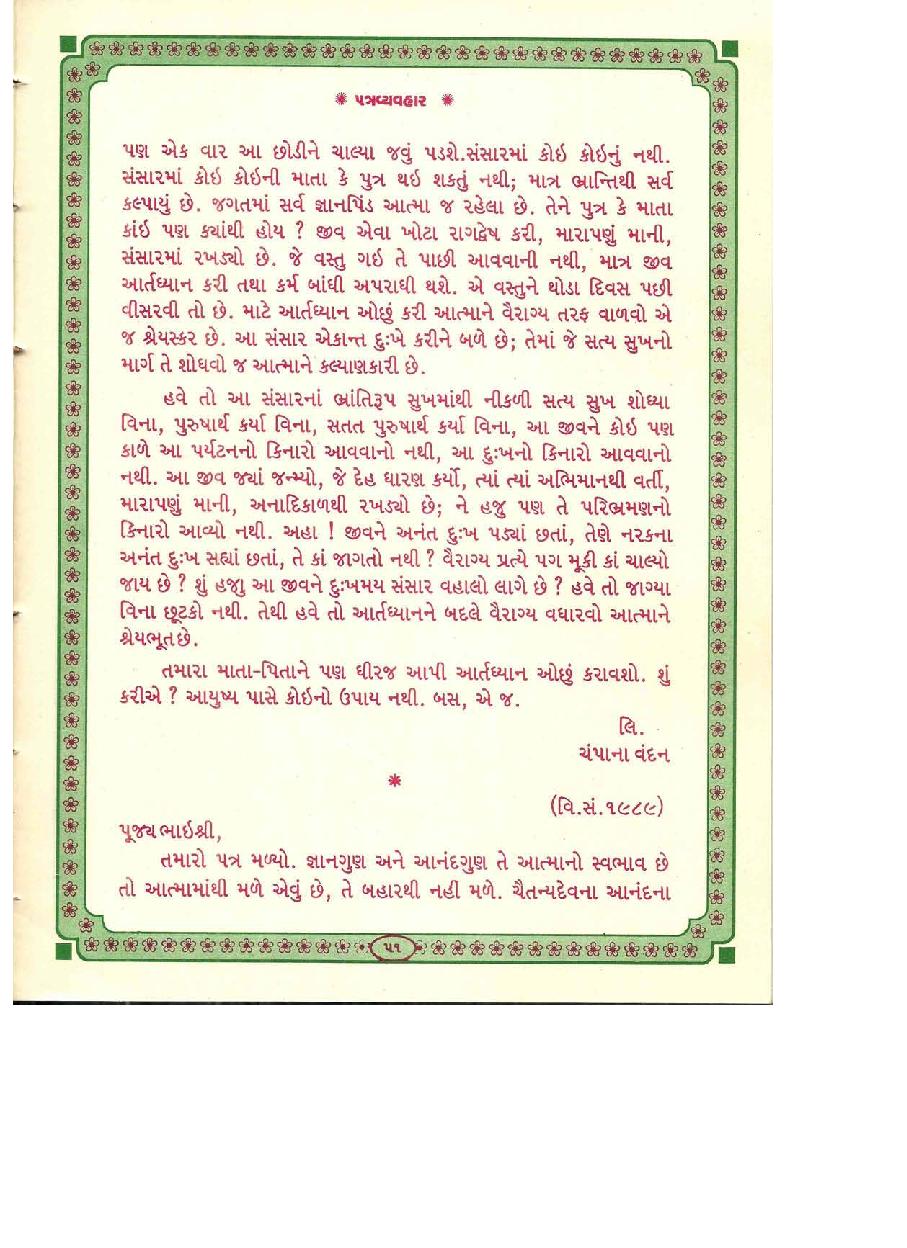 ✺ પત્રવ્યવહાર ✺
પણ એક વાર આ છોડીને ચાલ્યા જવું પડશે.સંસારમાં કોઇ કોઇનું નથી.
સંસારમાં કોઇ કોઇની માતા કે પુત્ર થઇ શકતું નથી; માત્ર ભ્રાન્તિથી સર્વ
કલ્પાયું છે. જગતમાં સર્વ જ્ઞાનપિંડ આત્મા જ રહેલા છે. તેને પુત્ર કે માતા
કાંઇ પણ ક્યાંથી હોય ? જીવ એવા ખોટા રાગદ્વેષ કરી, મારાપણું માની,
સંસારમાં રખડ્યો છે. જે વસ્તુ ગઇ તે પાછી આવવાની નથી, માત્ર જીવ
આર્તધ્યાન કરી તથા કર્મ બાંધી અપરાધી થશે. એ વસ્તુને થોડા દિવસ પછી
વીસરવી તો છે. માટે આર્તધ્યાન ઓછું કરી આત્માને વૈરાગ્ય તરફ વાળવો એ
જ શ્રેયસ્કર છે. આ સંસાર એકાન્ત દુઃખે કરીને બળે છે; તેમાં જે સત્ય સુખનો
માર્ગ તે શોધવો જ આત્માને કલ્યાણકારી છે.
હવે તો આ સંસારનાં ભ્રાંતિરૂપ સુખમાંથી નીકળી સત્ય સુખ શોધ્યા
વિના, પુરુષાર્થ કર્યા વિના, સતત પુરુષાર્થ કર્યા વિના, આ જીવને કોઇ પણ
કાળે આ પર્યટનનો કિનારો આવવાનો નથી, આ દુઃખનો કિનારો આવવાનો
નથી. આ જીવ જ્યાં જન્મ્યો, જે દેહ ધારણ કર્યો, ત્યાં ત્યાં અભિમાનથી વર્તી,
મારાપણું માની, અનાદિકાળથી રખડ્યો છે; ને હજુ પણ તે પરિભ્રમણનો
કિનારો આવ્યો નથી. અહા ! જીવને અનંત દુઃખ પડ્યાં છતાં, તેણે નરકના
અનંત દુઃખ સહ્યાં છતાં, તે કાં જાગતો નથી ? વૈરાગ્ય પ્રત્યે પગ મૂકી કાં ચાલ્યો
જાય છે ? શું હજુ આ જીવને દુઃખમય સંસાર વહાલો લાગે છે ? હવે તો જાગ્યા
વિના છૂટકો નથી. તેથી હવે તો આર્તધ્યાનને બદલે વૈરાગ્ય વધારવો આત્માને
શ્રેયભૂત છે.
તમારા માતા-પિતાને પણ ધીરજ આપી આર્તધ્યાન ઓછું કરાવશો. શું
કરીએ ? આયુષ્ય પાસે કોઇનો ઉપાય નથી. બસ, એ જ.
લિ.
ચંપાના વંદન
✺
(વિ.સં.૧૯૮૯)
પૂજ્ય ભાઇશ્રી,
તમારો પત્ર મળ્યો. જ્ઞાનગુણ અને આનંદગુણ તે આત્માનો સ્વભાવ છે
તો આત્મામાંથી મળે એવું છે, તે બહારથી નહી મળે. ચૈતન્યદેવના આનંદના
૫૧